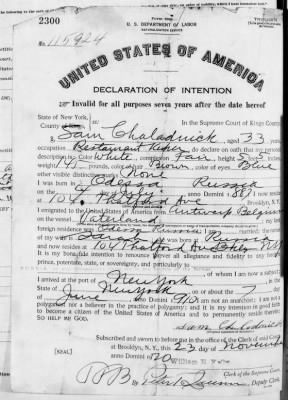 2300
Form 2202
U. S. DEPARTMENT OF LABOR
NATURALIZATION SERVICE
No. 115924
UNITED STATES OF AMERICA
DECLARATION OF INTENTION
Invalid for all purposes seven years after the date hereof
State of New York,
In the Supreme Court of Kings County
County of Kings
Sam Choladnick, aged 33 years,
occupation Restaurant Keeper, do declare on oath that my personal
description is: Color White, complexion Fair, height 5 feet 5 inches,
weight pounds, color of hair Brown, color of eyes Blue
other visible distinctive marks None
I was born in Odessa Russia
on the day of July, anno Domini 1887; I now reside
at 104 Thatford Ave, Brooklyn, N. Y.
I emigrated to the United States of America from Antwerp Belgium
on the vessel Vaderland; my last
foreign residence was Odessa Russia
was born at Russia
and now resides at 104 Thatford Ave
It is my bona fide intention to renounce forever all allegiance and fidelity to any foreign
prince, potentate, state, or sovereignty, and particularly to
of whom I am now a subject;
I arrived at the port of New York
of New York, on or about the 7 day
of June, anno Domini 1910; I am not an anarchist; I am not a
polygamist nor a believer in the practice of polygamy; and it is my intention in good faith
to become a citizen of the United States of America and to permanently reside therein:
SO HELP ME GOD.
Sam Choladnick
Subscribed and sworn to before me in the office of the Clerk of said Court
at Brooklyn, N. Y., this 23 day of November
anno Domini 1920
[SEAL]
Clerk of the Supreme Court.
By, Deputy Clerk.